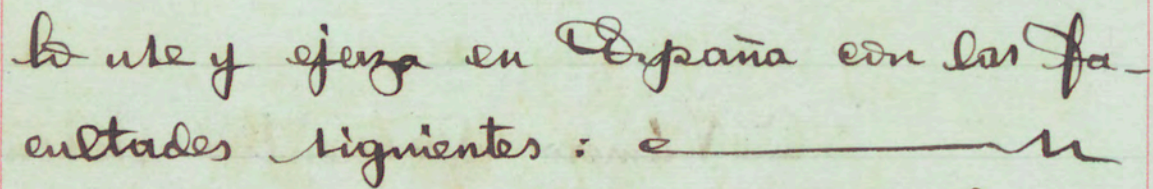 lo use y ejerza en España con las fa-
cultades siguientes: